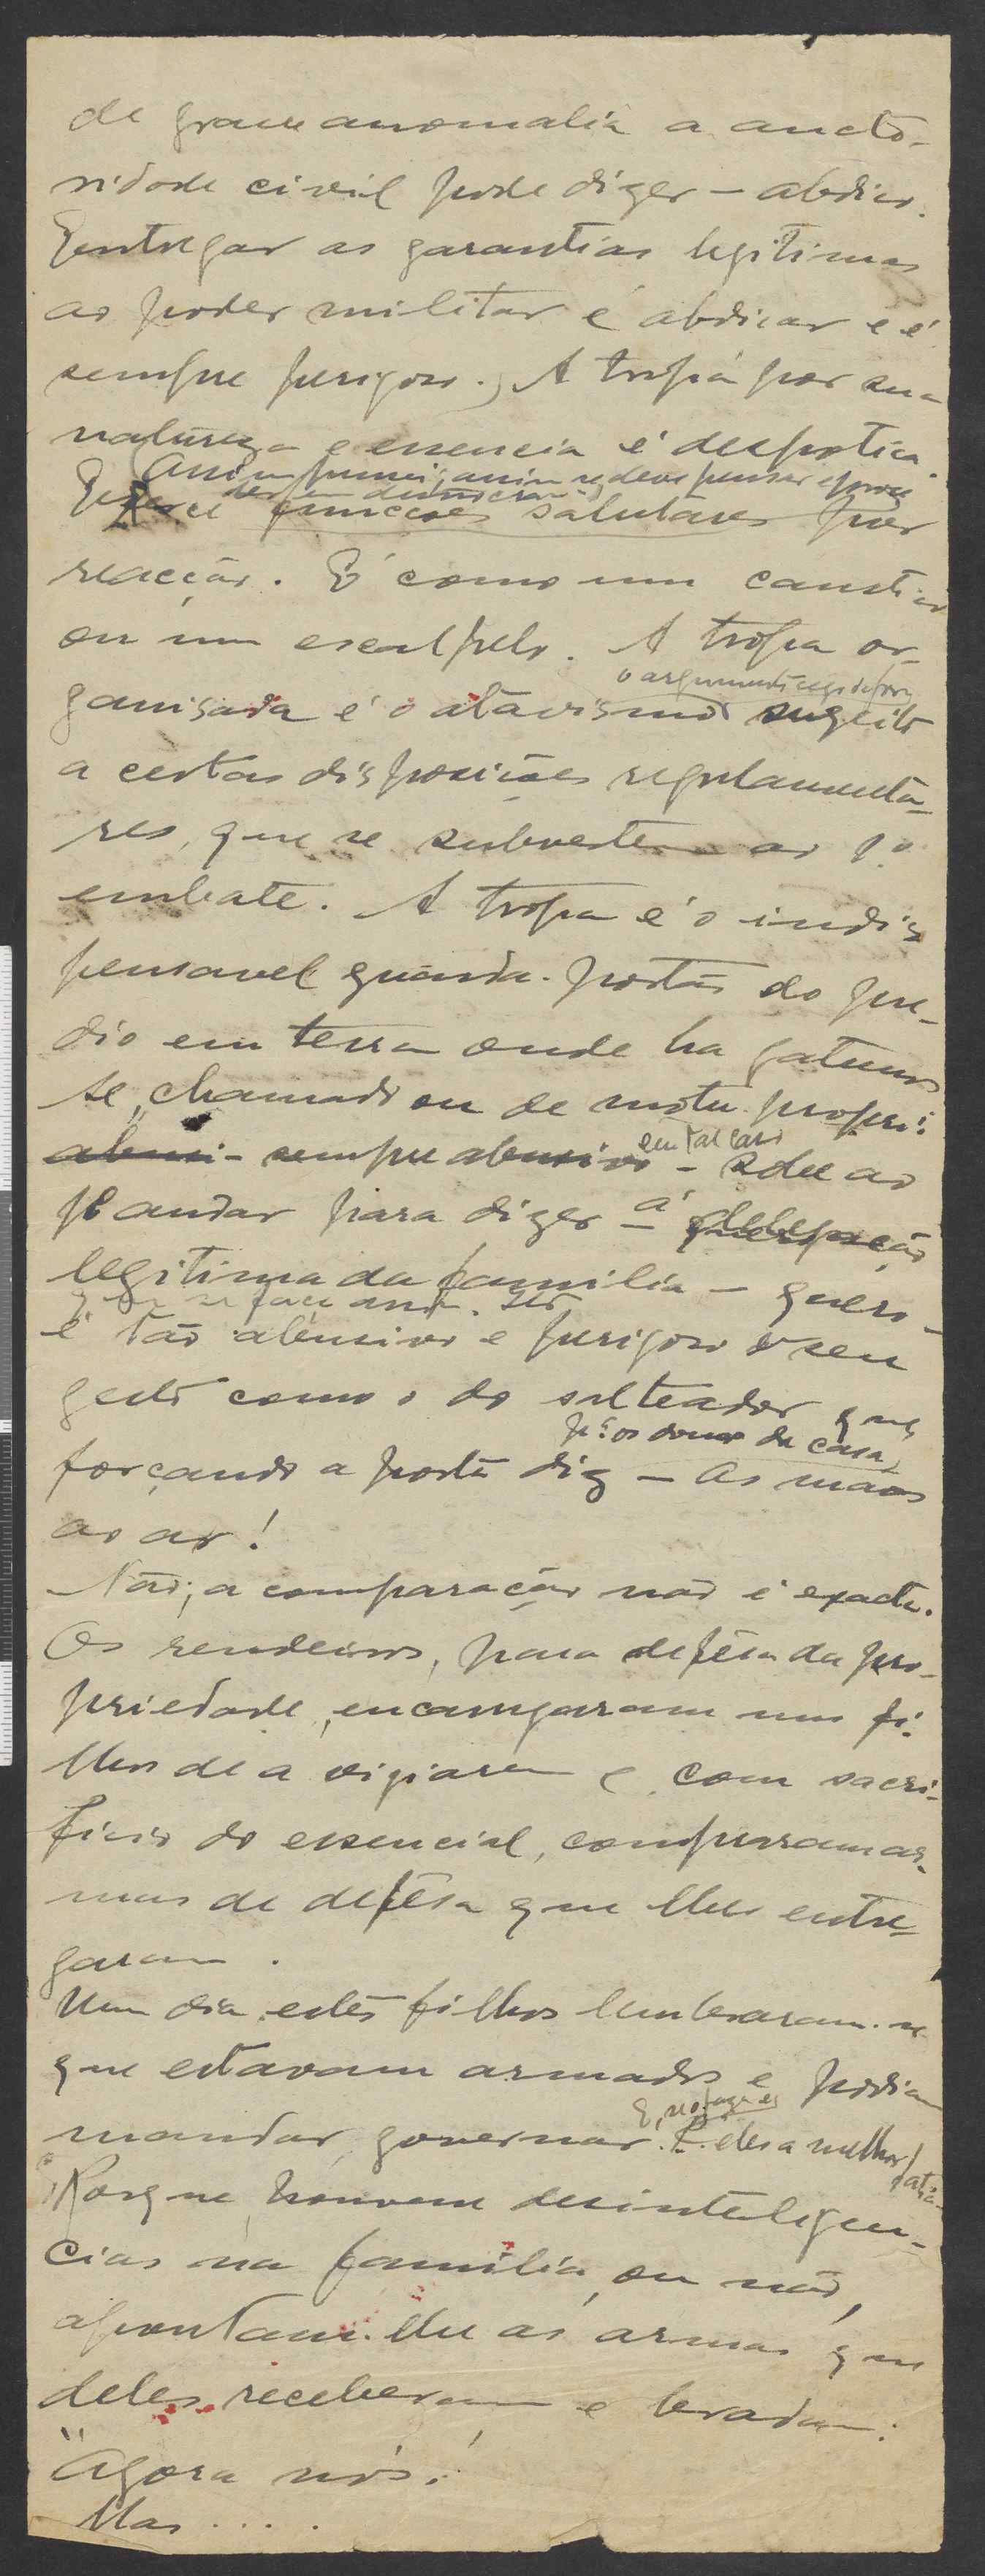 de grave anomalia a aucto-
ridade civil pode dizer – abdico.
Entregar as garantias legitimas
ao poder militar é abdicar e é
sempre perigoso. A tropa por sua
natureza e essencia é despotica.
Assim pensei, assim se deve pensar e
ser em democracia
Exerce funcções salutares por
reacção. É como um caustico
ou um escalpelo. A tropa or-
o argumento
ganisada é o atavismo sugeito
a certas disposições regulamenta-
res, que se subvertem ao 1º
embate. A tropa é o indis
pensavel guarda-portão do pre-
dio em terra onde ha gatunos
Se, chamado ou de motu-proprio
em tal caso
abusi- sempre abusivo – sobe ao
1º andar para dizer – á delegação
legitima da familia – quero
que se faça
é tão abusivo e perigoso o seu
gesto como o do salteador que,
pª os donos da casa,
forçando a porta diz – As mãos
ao ar!
Não; a comparação não é exacta.
Os rendeiros, para defêsa da pro-
priedade, encarregaram uns fi-
lhos de a vigiarem e, com sacri-
ficio do essencial, compraram ar-
mas de defêsa que lhes entre-
garam.
Um dia estes filhos lembraram-se
que estavam armados e podiam
mandar, governar. E deles a melhor fatia
Porque houvem desinteligen-
cias na familia, ou não,
apontam-lhe as armas que
deles receberam e bradam:
"Agora nós!
Mas....